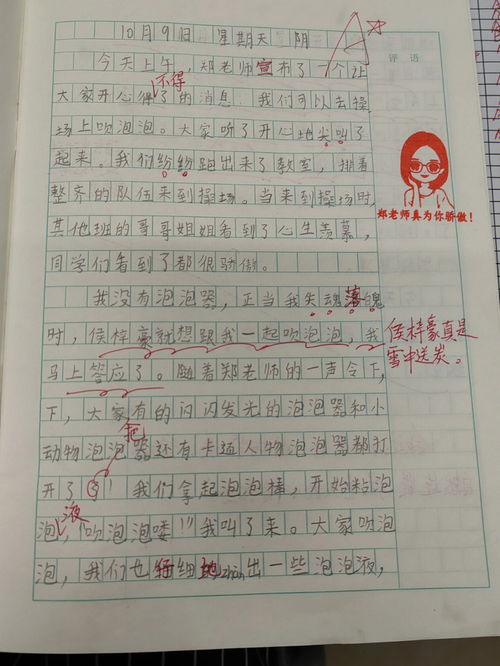 10月9日 星期天 阴
A☆
评语
今天上午，郑老师宣布了一个让
不得
大家开心得了的消息，我们可以去操
场上吹泡泡。大家听了开心地尖叫了
起来。我们纷纷跑出来了教室，排着
整齐的队伍来到操场。当来到操场时，
其他班的哥哥姐姐看到了心生羡慕，
同学们看到了都很骄傲。
郑老师真为你骄傲！
我没有泡泡器，正当我失魂落魄
时，侯梓豪就想跟我一起吹泡泡，我
侯梓豪真是
雪中送炭。
马上答应了。随着郑老师的一声令下，
下，大家有的闪闪发光的泡泡器和小
把
动物泡泡器还有卡通人物泡泡器都打
开了！我们拿起泡泡棒，开始粘泡
液
泡，吹泡泡喽！”我叫了来。大家吹泡
泡，我们也仔细地zhàn出一些泡泡液，